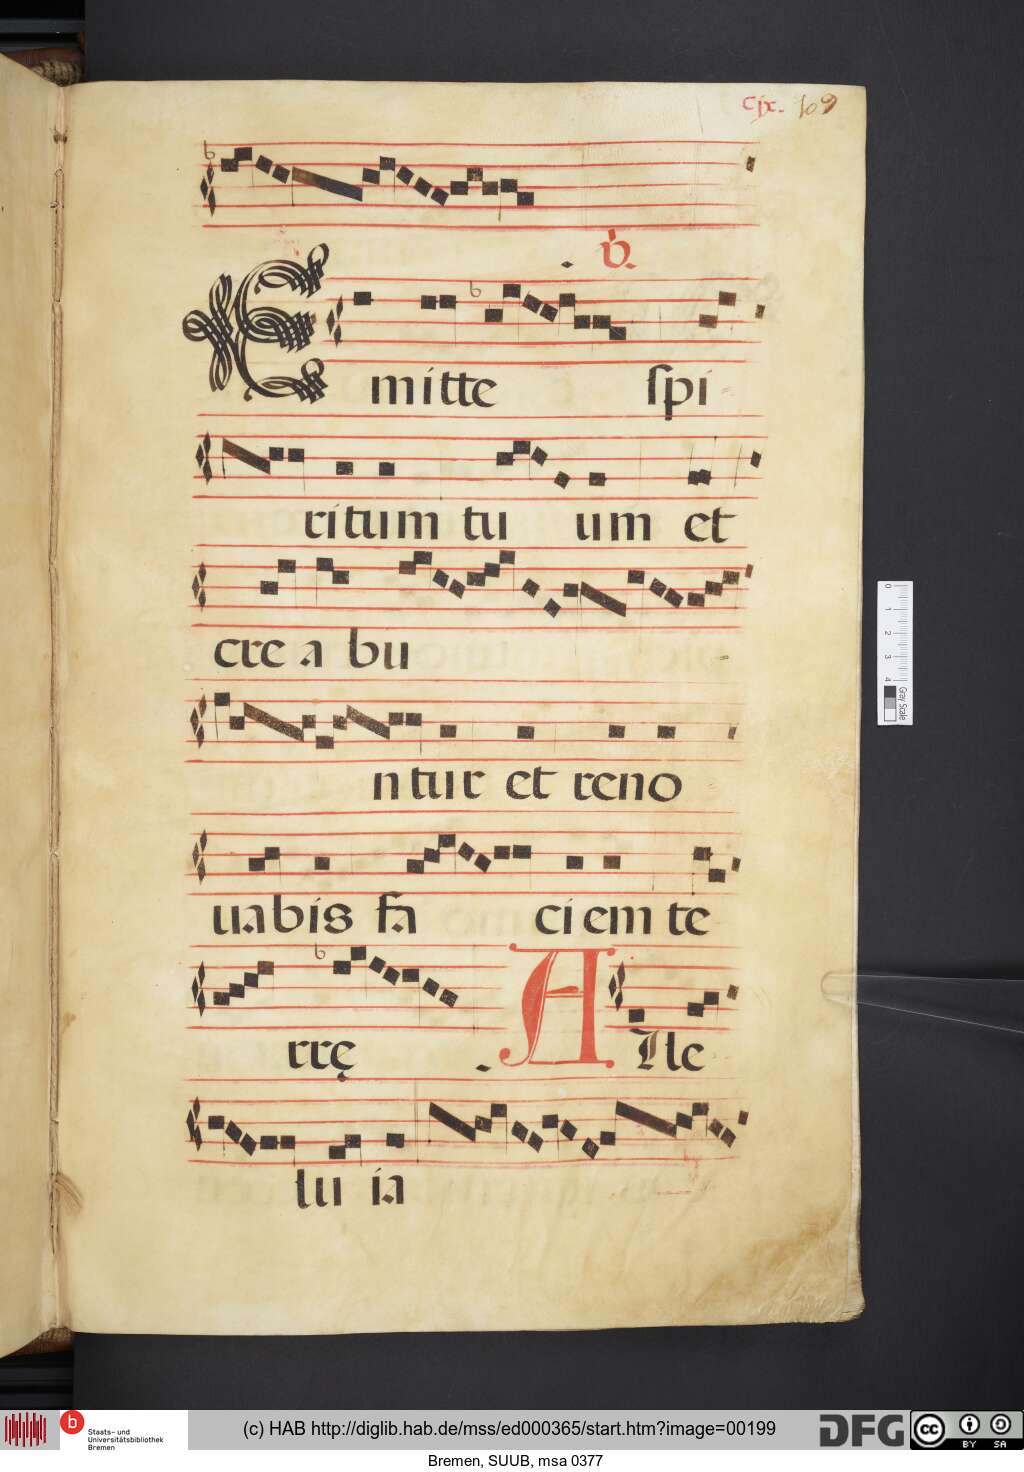 cix. 109
℣.
Emitte spi
ritum tu um et
cre a bu
ntur et reno
uabis fa ciem te
rrę Alle
lu ia
0 1 2 3 4
Gray Scale
b Staats- und
Universitätsbibliothek
Bremen
(c) HAB http://diglib.hab.de/mss/ed000365/start.htm?image=00199
DFG
cc BY SA
Bremen, SUUB, msa 0377